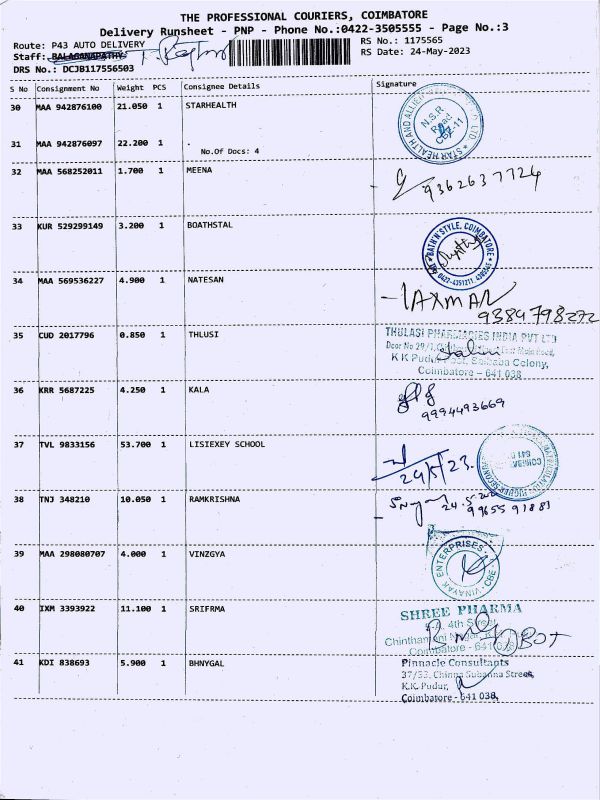 THE PROFESSIONAL COURIERS, COIMBATORE
Delivery Runsheet - PNP - Phone No.:0422-3505555 - Page No.:3
Route: P43 AUTO DELIVERY
RS No.: 1175565
Staff: BALAGANAPATHY
RS Date: 24-May-2023
DRS No.: DCJB117556503
S No Consignment No Weight PCS Consignee Details Signature
30 MAA 942876100 21.050 1 STARHEALTH
STAR HEALTH AND ALLIED
N.S.R Road CBE-11
31 MAA 942876097 22.200 1 .
No.Of Docs: 4
32 MAA 568252011 1.700 1 MEENA
9362637724
33 KUR 529299149 3.200 1 BOATHSTAL
BATH'N'STYLE, COIMBATORE
34 MAA 569536227 4.900 1 NATESAN
LAXMAN
9384798272
35 CUD 2017796 0.850 1 THLUSI
THULASI PHARMACIES INDIA PVT LTD
K K Pudur Post, Saibaba Colony,
Coimbatore - 641 038
36 KRR 5687225 4.250 1 KALA
9994493669
37 TVL 9833156 53.700 1 LISIEXEY SCHOOL
24/5/23.
38 TNJ 348210 10.050 1 RAMKRISHNA
99655 91881
39 MAA 298080707 4.000 1 VINZGYA
VINAYAK ENTERPRISES CBE
40 IXM 3393922 11.100 1 SRIFRMA
SHREE PHARMA
4th Street
Coimbatore - 641
41 KDI 838693 5.900 1 BHNYGAL
Pinnacle Consultants
37/53, Chinna Subanna Street,
K.K. Pudur,
Coimbatore - 641 038.